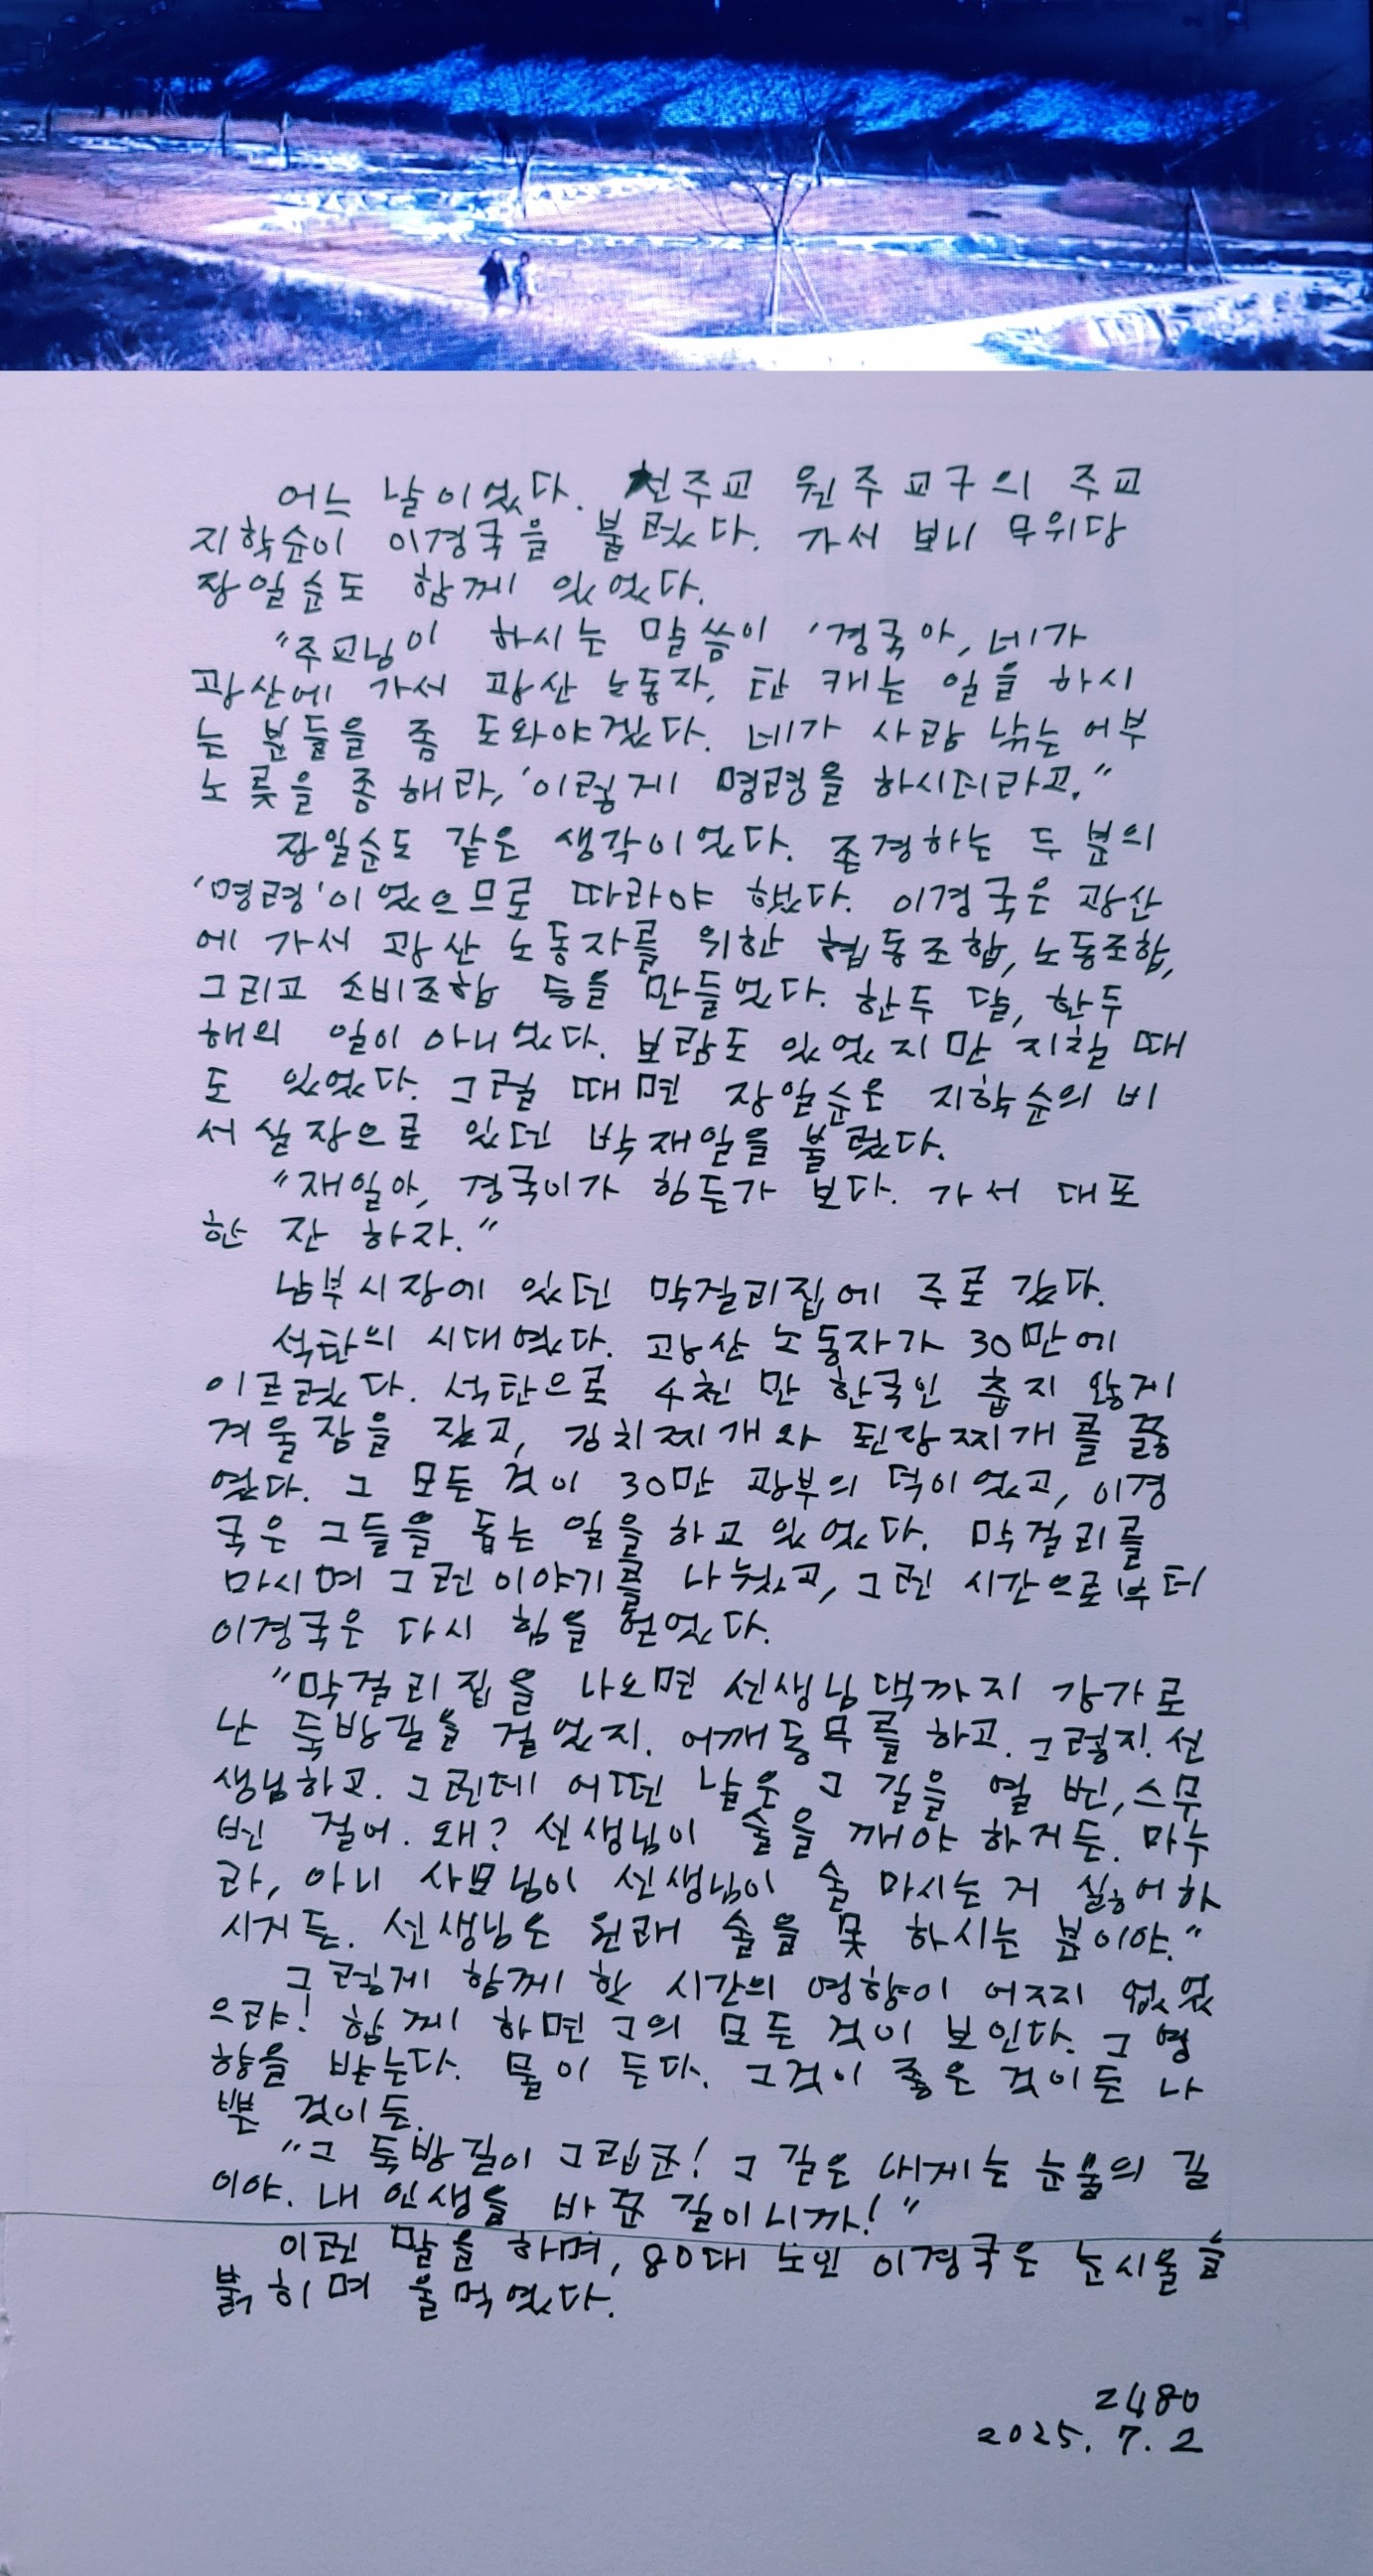 어느 날이었다. 천주교 원주교구의 주교
지학순이 이경국을 불렀다. 가서 보니 무위당
장일순도 함께 있었다.
"주교님이 하시는 말씀이 '경국아, 네가
광산에 가서 광산 노동자, 탄 캐는 일을 하시
는 분들을 좀 도와야겠다. 네가 사람 낚는 어부
노릇을 좀 해라,' 이렇게 명령을 하시더라고."
장일순도 같은 생각이었다. 존경하는 두 분의
'명령'이었으므로 따라야 했다. 이경국은 광산
에 가서 광산 노동자를 위한 협동조합, 노동조합,
그리고 소비조합 등을 만들었다. 한두 달, 한두
해의 일이 아니었다. 보람도 있었지만 지칠 때
도 있었다. 그럴 때면 장일순은 지학순의 비
서실장으로 있던 박재일을 불렀다.
"재일아, 경국이가 힘든가 보다. 가서 대포
한 잔 하자."
남부시장에 있던 막걸리집에 주로 갔다.
석탄의 시대였다. 광산 노동자가 30만에
이르렀다. 석탄으로 4천 만 한국인 춥지 않게
겨울잠을 잤고, 김치찌개와 된장찌개를 끓
였다. 그 모든 것이 30만 광부의 덕이었고, 이경
국은 그들을 돕는 일을 하고 있었다. 막걸리를
마시며 그런 이야기를 나눴고, 그런 시간으로부터
이경국은 다시 힘을 얻었다.
"막걸리집을 나오면 선생님댁까지 강가로
난 둑방길을 걸었지. 어깨동무를 하고. 그렇지. 선
생님하고. 그런데 어떤 날은 그 길을 열 번, 스무
번 걸어. 왜? 선생님이 술을 깨야 하거든. 마누
라, 아니 사모님이 선생님이 술 마시는 거 싫어하
시거든. 선생님은 원래 술을 못 하시는 분이야."
그렇게 함께 한 시간의 영향이 어찌 없었
으랴! 함께 하면 그의 모든 것이 보인다. 그 영
향을 받는다. 물이 든다. 그것이 좋은 것이든 나
쁜 것이든.
"그 둑방길이 그립군! 그 길은 내게는 눈물의 길
이야. 내 인생을 바꾼 길이니까!"
이런 말을 하며, 80대 노인 이경국은 눈시울을
붉히며 울먹였다.
2480
2025. 7. 2